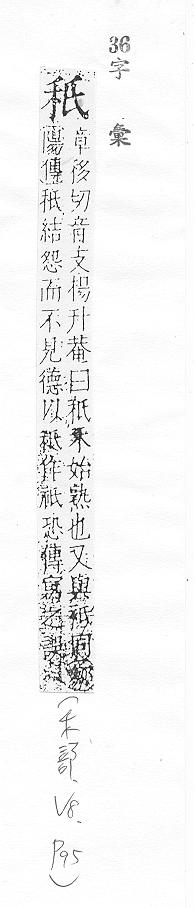 36字彙
秖
章移切音支楊升菴曰秖禾始熟也又與祇同鄒
陽傳秖結怨而不見德以秖作祇恐傳寫之誤
(禾部、V8、P95)